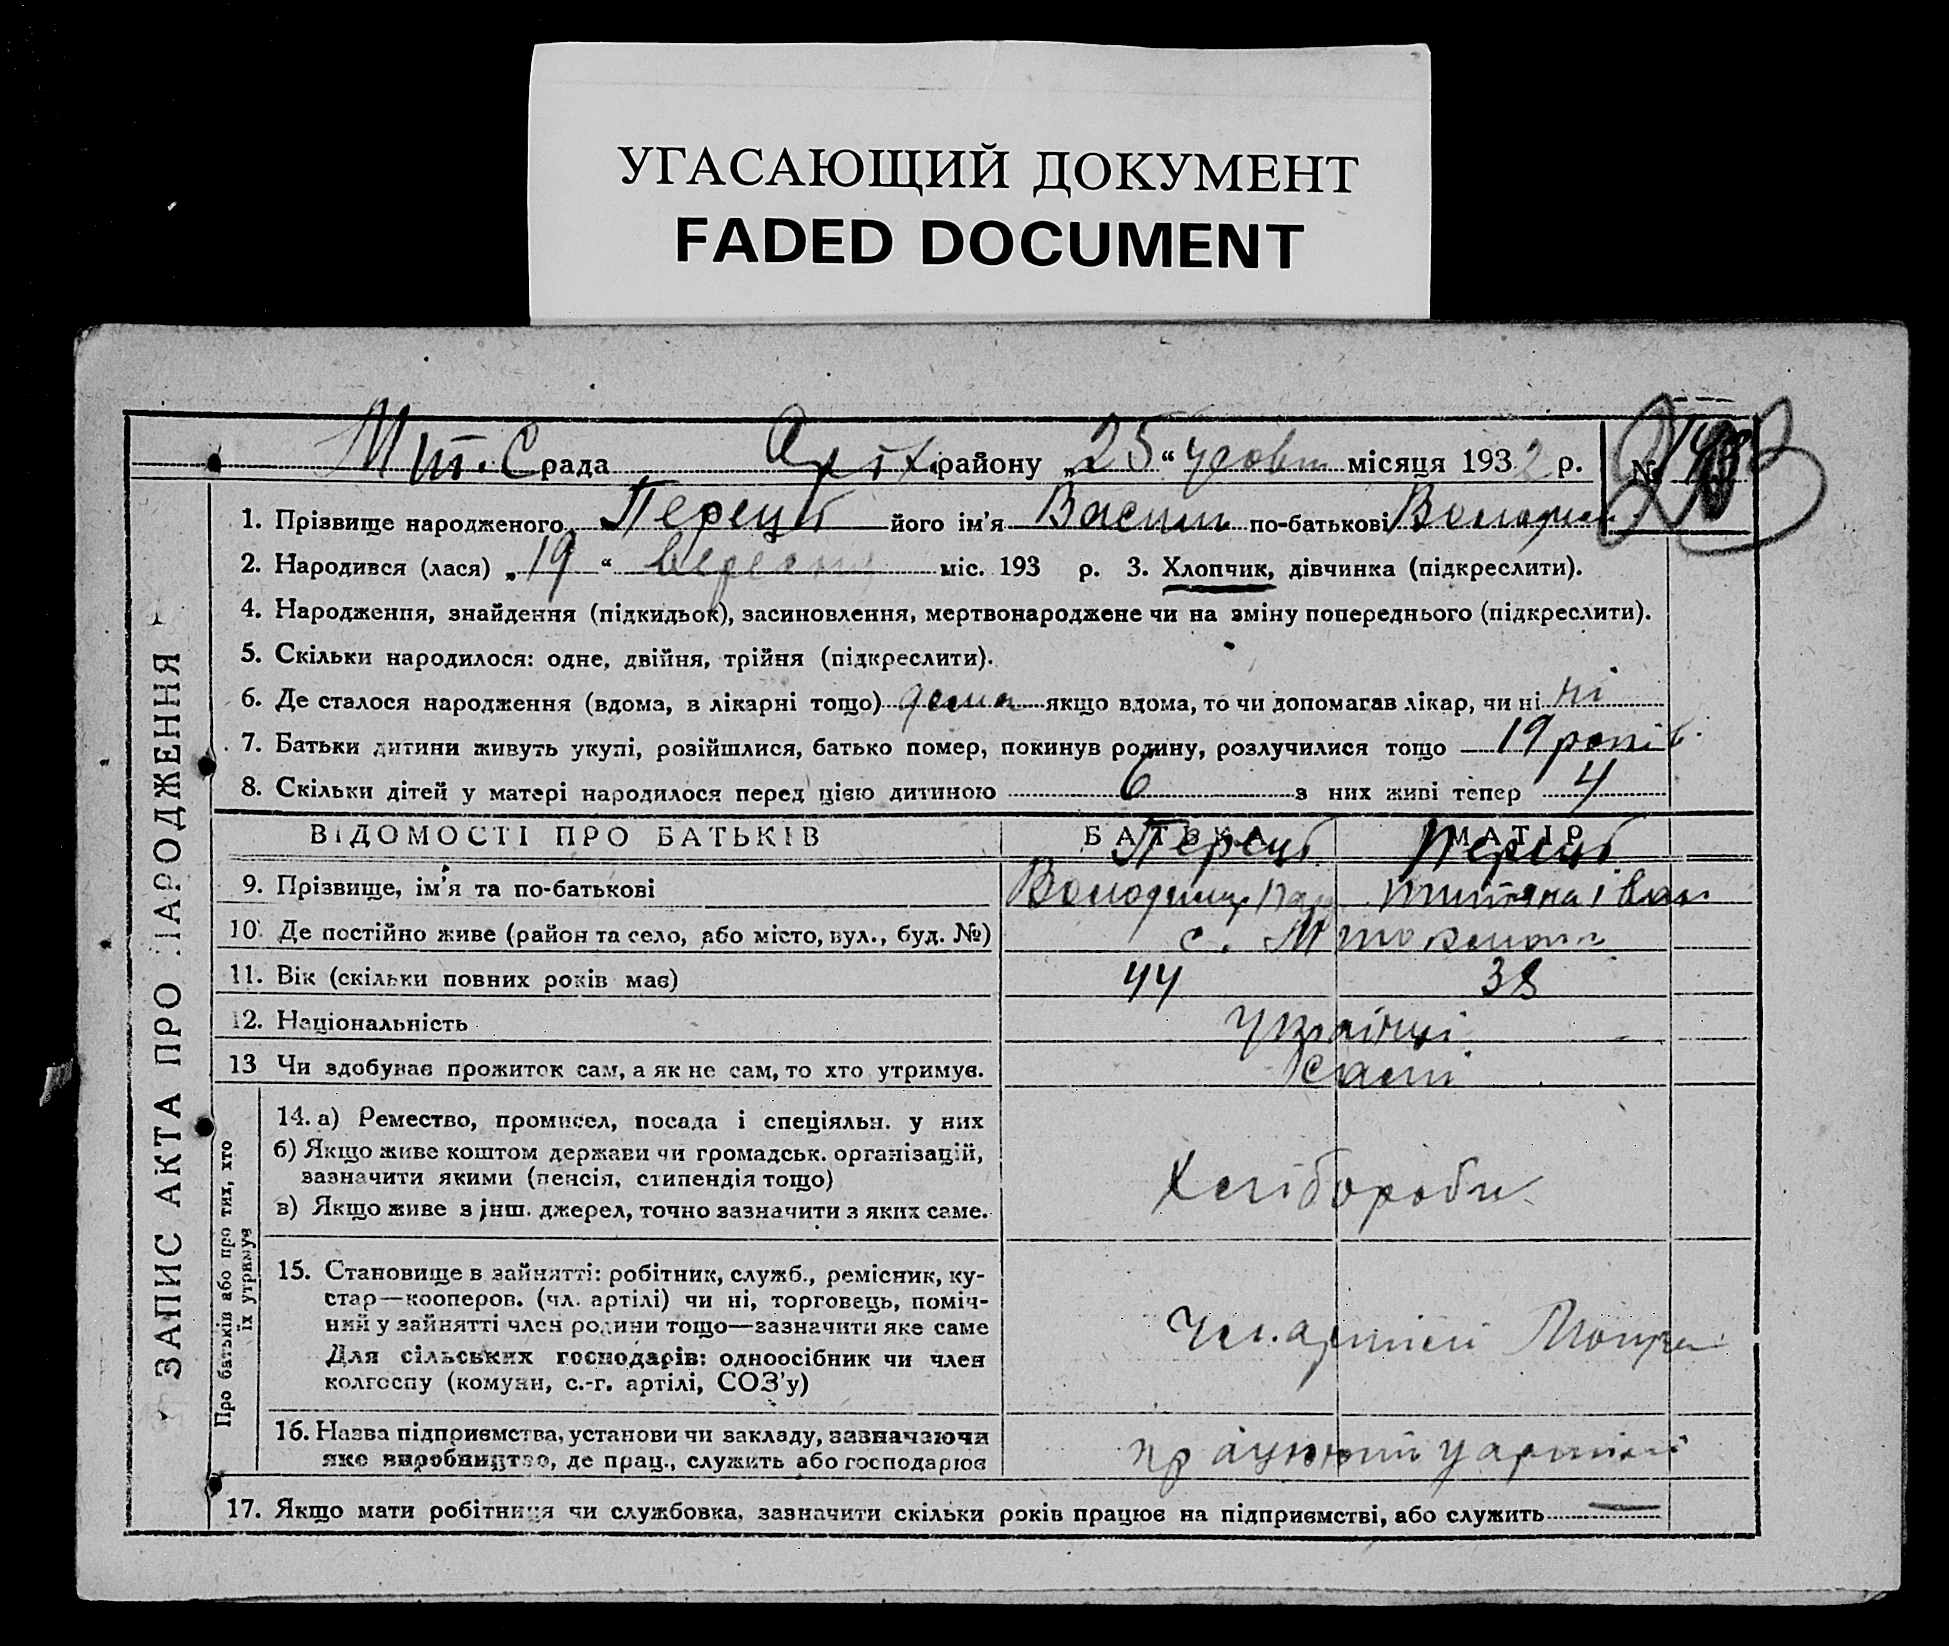 УГАСАЮЩИЙ ДОКУМЕНТ
FADED DOCUMENT
Мит. С рада район у „25“ жовт місяця 1932 р. №
1. Прізвище народженого Перець його ім'я Васил по-батькові
2. Народився (лася) „19“ вересня міс. 193 р. 3. Хлопчик, дівчинка (підкреслити).
4. Народження, знайдення (підкидьок), засиновлення, мертвонароджене чи на зміну попереднього (підкреслити).
5. Скільки народилося: одне, двійня, трійня (підкреслити).
6. Де сталося народження (вдома, в лікарні тощо) дома якщо вдома, то чи допомагав лікар, чи ні ні
7. Батьки дитини живуть укупі, розійшлися, батько помер, покинув родину, розлучилися тощо 19 років.
8. Скільки дітей у матері народилося перед цією дитиною 6 з них живі тепер 4
ВІДОМОСТІ ПРО БАТЬКІВ БАТЬКА МАТІР
Перець Перець
9. Прізвище, ім'я та по-батькові Володимир Титяна Іван
10. Де постійно живе (район та село, або місто, вул., буд. №) с.
11. Вік (скільки повних років має) 44 38
12. Національність Українці
13 Чи здобуває прожиток сам, а як не сам, то хто утримує. Самі
14. а) Ремество, промисел, посада і спеціяльн. у них
б) Якщо живе коштом держави чи громадськ. організацій,
зазначити якими (пенсія, стипендія тощо)
в) Якщо живе з інш. джерел, точно зазначити з яких саме.
Хлібороби
15. Становище в зайнятті: робітник, служб., ремісник, ку-
стар—кооперов. (чл. артілі) чи ні, торговець, поміч-
ний у зайнятті член родини тощо—зазначити яке саме
Для сільських господарів: одноосібник чи член
колгоспу (комуни, с.-г. артілі, СОЗ'у)
Чл. артілі
16. Назва підприємства, установи чи закладу, зазначаючи
яке виробництво, де прац., служить або господарює
працюють у артілі
17. Якщо мати робітниця чи службовка, зазначити скільки років працює на підприємстві, або служить —
ЗАПИС АКТА ПРО НАРОДЖЕННЯ
Про батьків або про тих, хто
їх утримує